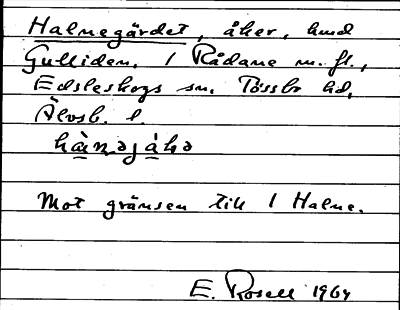 Halnegärdet, åker, hmd
Gulliden. 1 Rådane m. fl.,
Edsleskogs sn. Tössbo hd,
Älvsb. l.
Mot gränsen till 1 Halne.
E. Rosell 1964